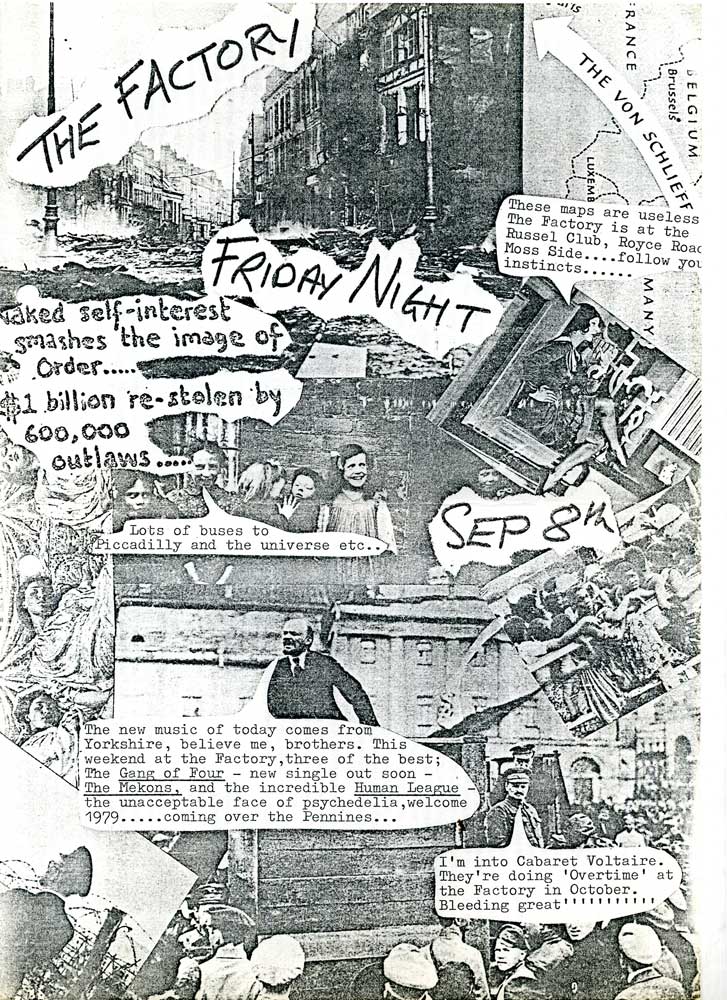 THE FACTORY
aris
FRANCE
BELGIUM
Brussels
THE VON SCHLIEFF
LUXEMB
These maps are useless
The Factory is at the
Russel Club, Royce Roa
Moss Side....follow you
instincts......
MANY
FRIDAY NIGHT
Naked self-interest
smashes the image of
Order.....
$1 billion re-stolen by
600,000
outlaws.....
Lots of buses to
Piccadilly and the universe etc..
SEP 8th
The new music of today comes from
Yorkshire, believe me, brothers. This
weekend at the Factory,three of the best;
The Gang of Four - new single out soon -
The Mekons, and the incredible Human League -
the unacceptable face of psychedelia,welcome
1979.....coming over the Pennines...
I'm into Cabaret Voltaire.
They're doing 'Overtime' at
the Factory in October.
Bleeding great''''''''''''